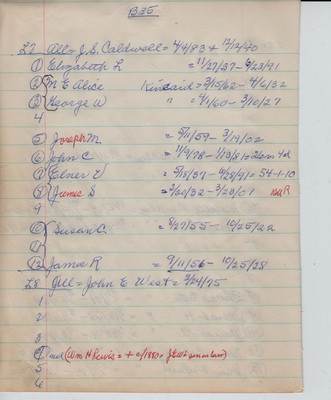 B35
L7 All = J.S. Caldwell = 4/4/83 + 12/12/40
① Elizabeth L = 11/27/37 - 6/23/91
② M E Alice Kincaid = 3/15/62 - 4/6/32
③ George W " = 4/1/60 - 3/10/27
4
5 Joseph M. = 5/11/59 - 3/19/02
6 John C = 11/9/78 - 1/19/81
7 Elner V = 5/18/37 - 4/28/41 = 54-1-10
8 James S = 2/60/32 - 3/29/01
9
10 Susan C. = 8/27/55 - 10/25/22
11
12 James R = 9/11/56 - 10/25/28
L8 Jill = John E West = 2/24/75
1
2
3
④ and (Wm H Lewis = +
5
6